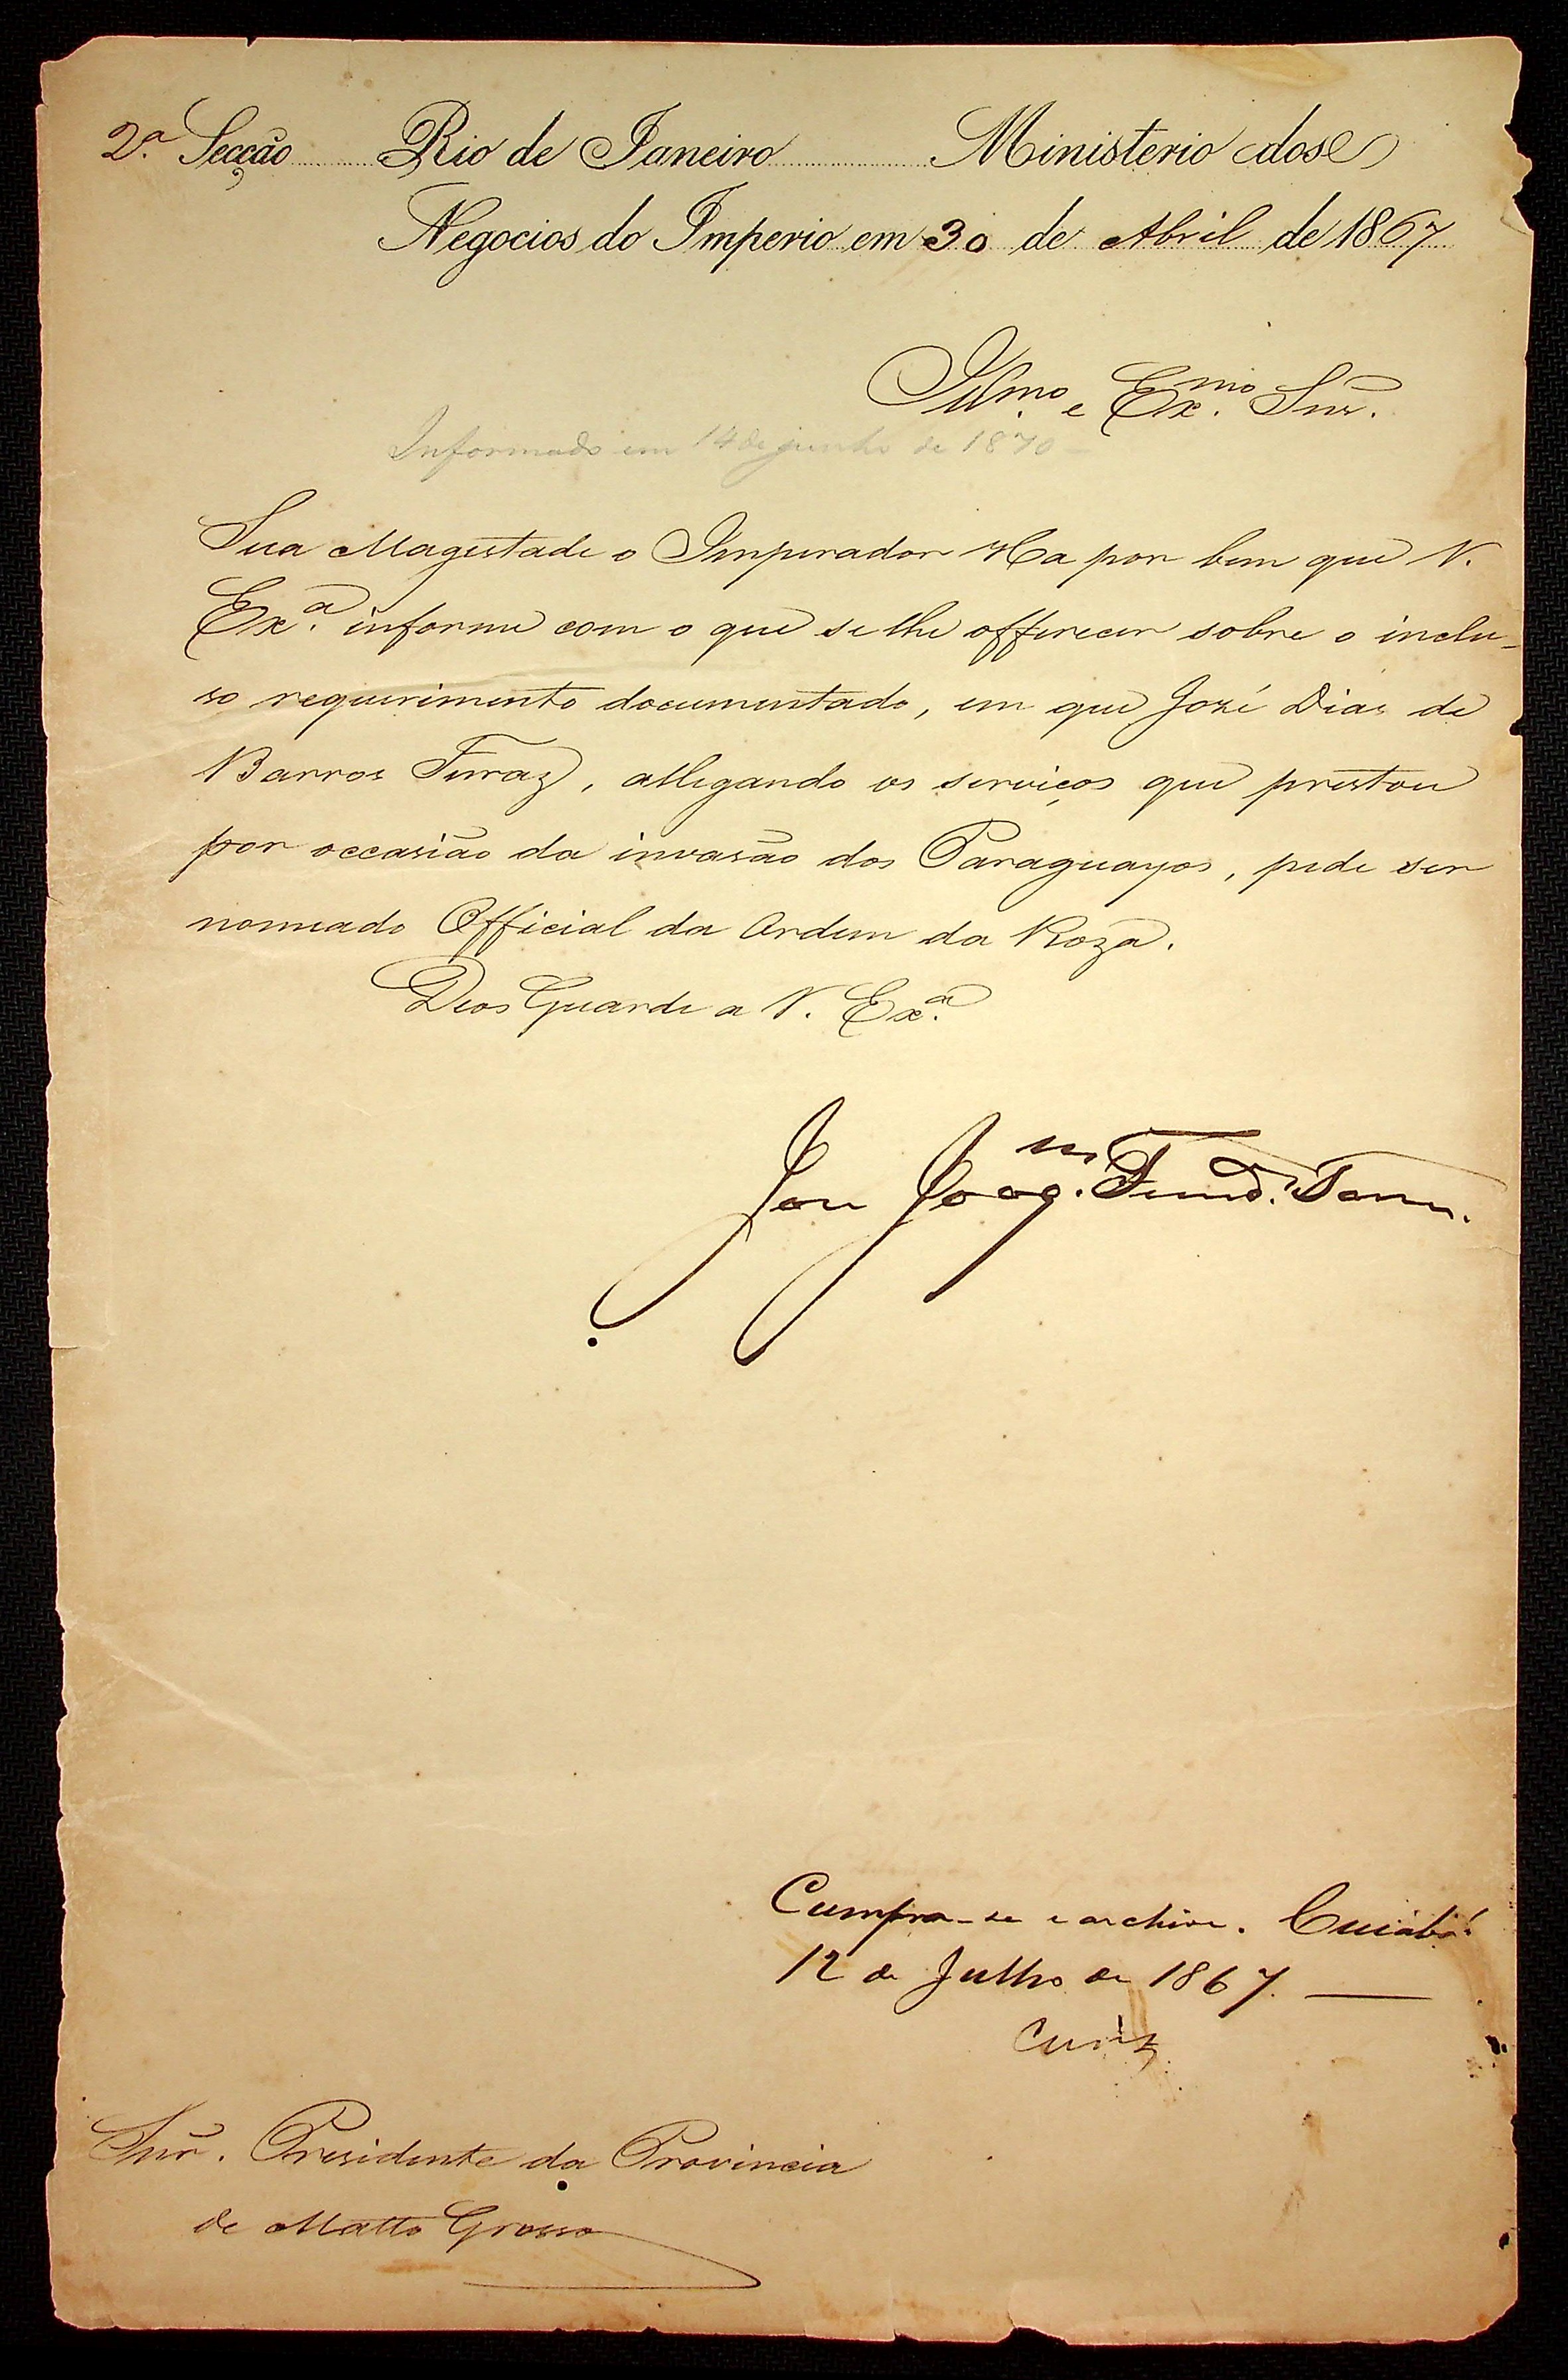 2.ª Secção Rio de Janeiro Ministerio dos
Negocios do Imperio em 30 de Abril de 1867
Illmo. e Exmo. Snr.
Informado em 14 de junho de 1870
Sua Magestade o Imperador Ha por bem que V.
Exª. informe com o que se lhe offerecer sobre o inclu-
so requerimento documentado, em que José Dias de
Barros Ferraz, allegando os serviços que prestou
por occasião da invasão dos Paraguayos, pede ser
nomeado Official da Ordem da Roza.
Deos Guarde a V. Exª.
José Joaqm. Fernd. Torres.
Cumpra-se e archive. Cuiabá
12 de Julho de 1867.
Snr. Presidente da Provincia
de Matto Grosso